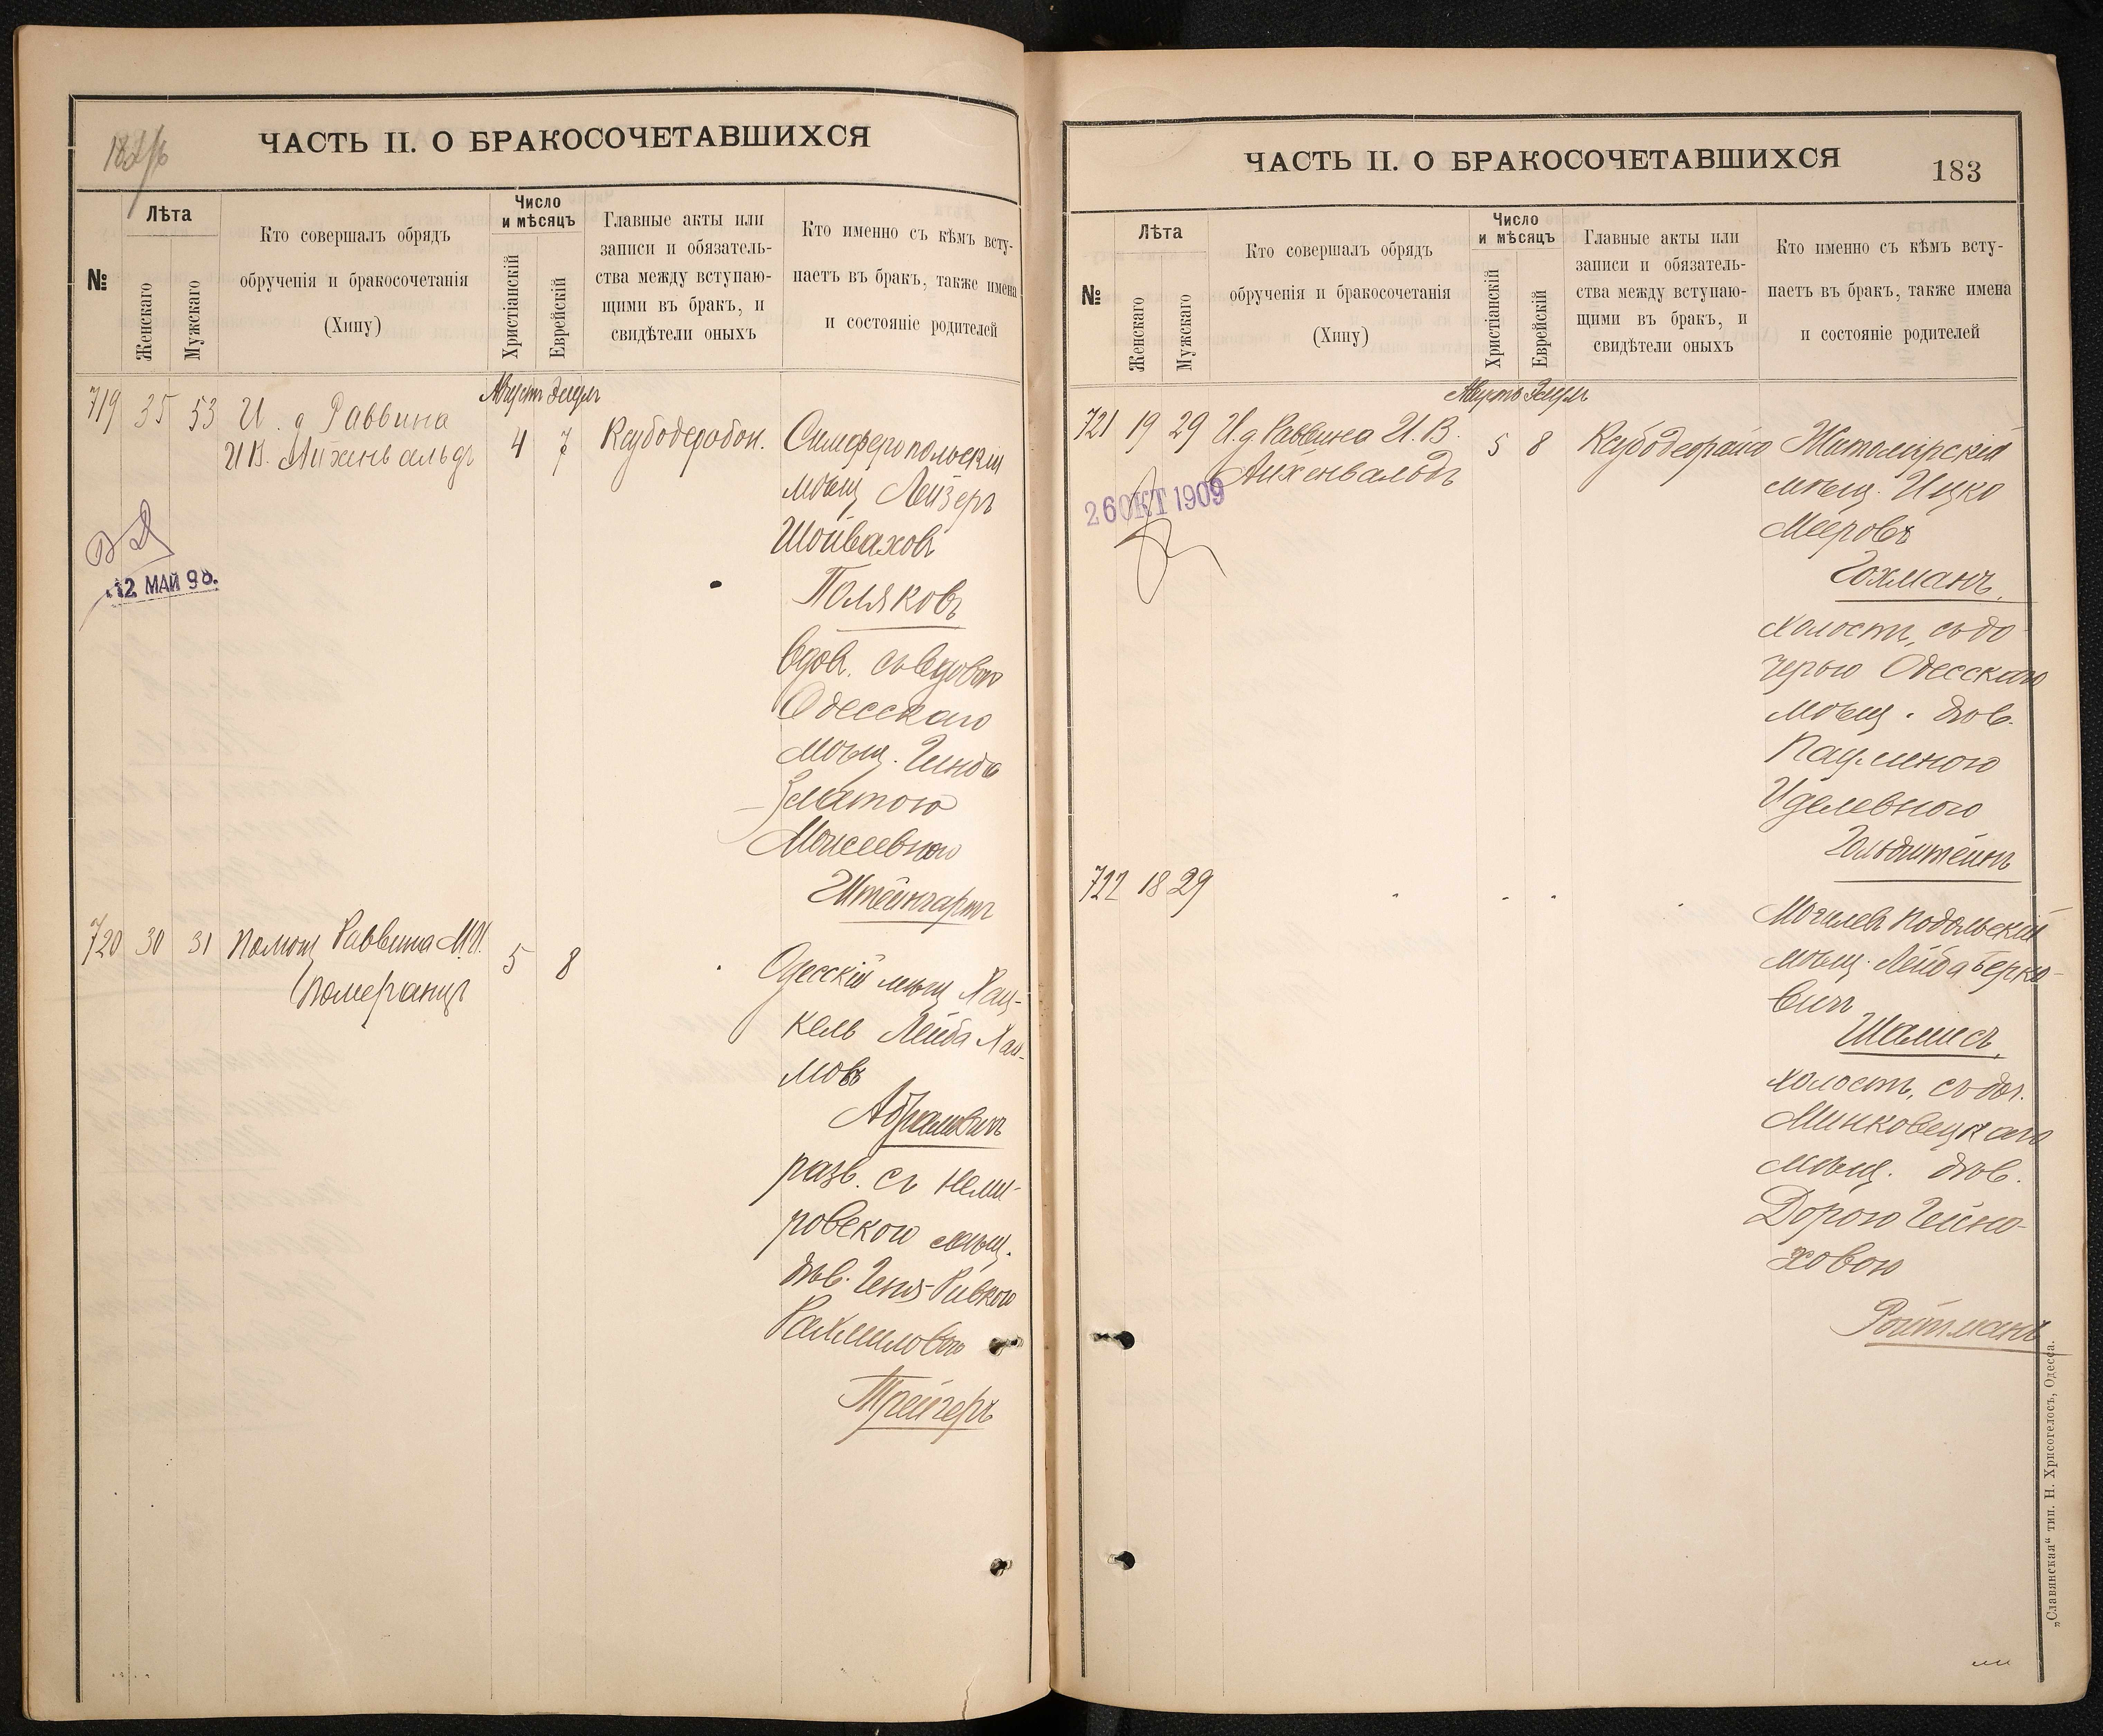 ЧАСТЬ II. О БРАКОСОЧЕТАВШИХСЯ
№
Лѣта
Женскаго
Мужскаго
Кто совершалъ обрядъ
обрученія и бракосочетанія
(Хипу)
Число
и мѣсяцъ
Христіанскій
Еврейскій
Главные акты или
записи и обязатель-
ства между вступаю-
щими въ бракъ, и
свидѣтели оныхъ
Кто именно съ кѣмъ всту-
паетъ въ бракъ, также имена
и состояніе родителей
Августъ Элулъ
719 35 53 И. д Раввина
И.В. Айхенвальдъ
4 7
Симферопольскій
мѣщ Лейзеръ
Шойвахов
Поляковъ
вдов. съ вдовою
Одесскаго
мѣщ. Гинда
Златою
Моисеевною
Штейнгартъ
12 МАЙ 98.
720 30 31 Помощ Раввина М.И.
Померанцъ
5 8
Одесскій мѣщ Хац-
кель Лейба Хаи-
мовъ
Абрамовичъ
разв. съ Неми-
ровскою мѣщ.
дѣв. Геня-Ривкою
Рахмиловою
Трейгеръ
ЧАСТЬ II. О БРАКОСОЧЕТАВШИХСЯ
183
№
Лѣта
Женскаго
Мужскаго
Кто совершалъ обрядъ
обрученія и бракосочетанія
(Хипу)
Число
и мѣсяцъ
Христіанскій
Еврейскій
Главные акты или
записи и обязатель-
ства между вступаю-
щими въ бракъ, и
свидѣтели оныхъ
Кто именно съ кѣмъ всту-
паетъ въ бракъ, также имена
и состояніе родителей
Августъ Элулъ
721 19 29 И.д. Раввина И.В.
Айхенвальдъ
5 8
Житомірскій
мѣщ. Ицко
Мееровъ
Гохманъ,
холостъ, съ до-
черью Одесскаго
мѣщ. дѣв.
Иделевною
Гольдштейнъ
26 ОКТ 1909
722 18 29
Могилев Подольскій
мѣщ. Лейба Берко-
вичъ
Шамисъ,
холостъ, съ доч.
Минковецкаго
мѣщ. дѣв.
Дорою Гейно-
ховою
Ройтманъ
„Славянская“ тип. Н. Хрисогелосъ, Одесса.